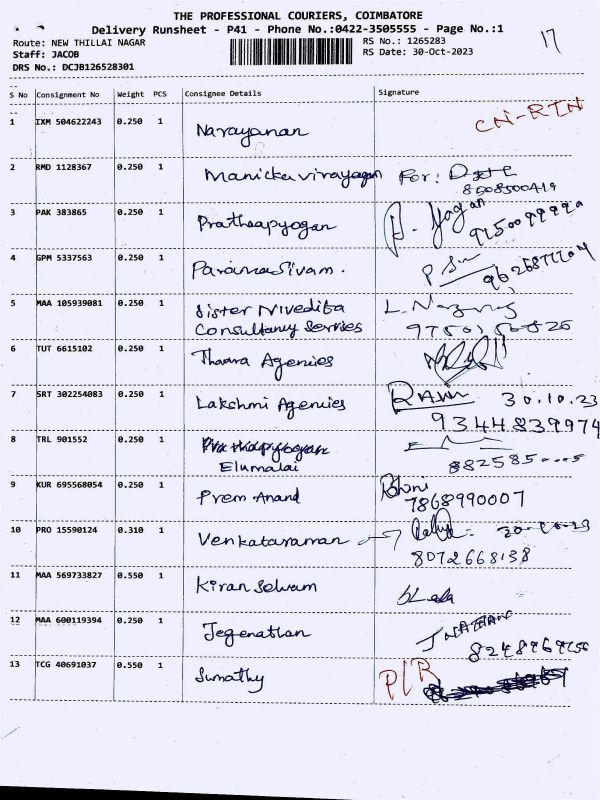 THE PROFESSIONAL COURIERS, COIMBATORE
Delivery Runsheet - P41 - Phone No.:0422-3505555 - Page No.:1
Route: NEW THILLAI NAGAR
RS No.: 1265283
17
Staff: JACOB
RS Date: 30-Oct-2023
DRS No.: DCJB126528301
S No Consignment No Weight PCS Consignee Details Signature
1 IXM 504622243 0.250 1 Narayanan CN-RTN
2 RMD 1128367 0.250 1 Manickavinayagan For:
8508500419
3 PAK 383865 0.250 1 Pratheapyogan
4 GPM 5337563 0.250 1 ParamaSivam.
5 MAA 105939081 0.250 1 Sister Nivedita
Consultancy Services
6 TUT 6615102 0.250 1 Thaara Agencies
7 SRT 302254083 0.250 1 Lakshmi Agencies RAM 30.10.23
9344839974
8 TRL 901552 0.250 1
Elumalai
9 KUR 695568054 0.250 1 Prem Anand
7868990007
10 PRO 15590124 0.310 1 Venkataraman
8072668138
11 MAA 569733827 0.550 1 Kiran Selvam
12 MAA 600119394 0.250 1 Jegenathan
13 TCG 40691037 0.550 1 Sumathy P/R